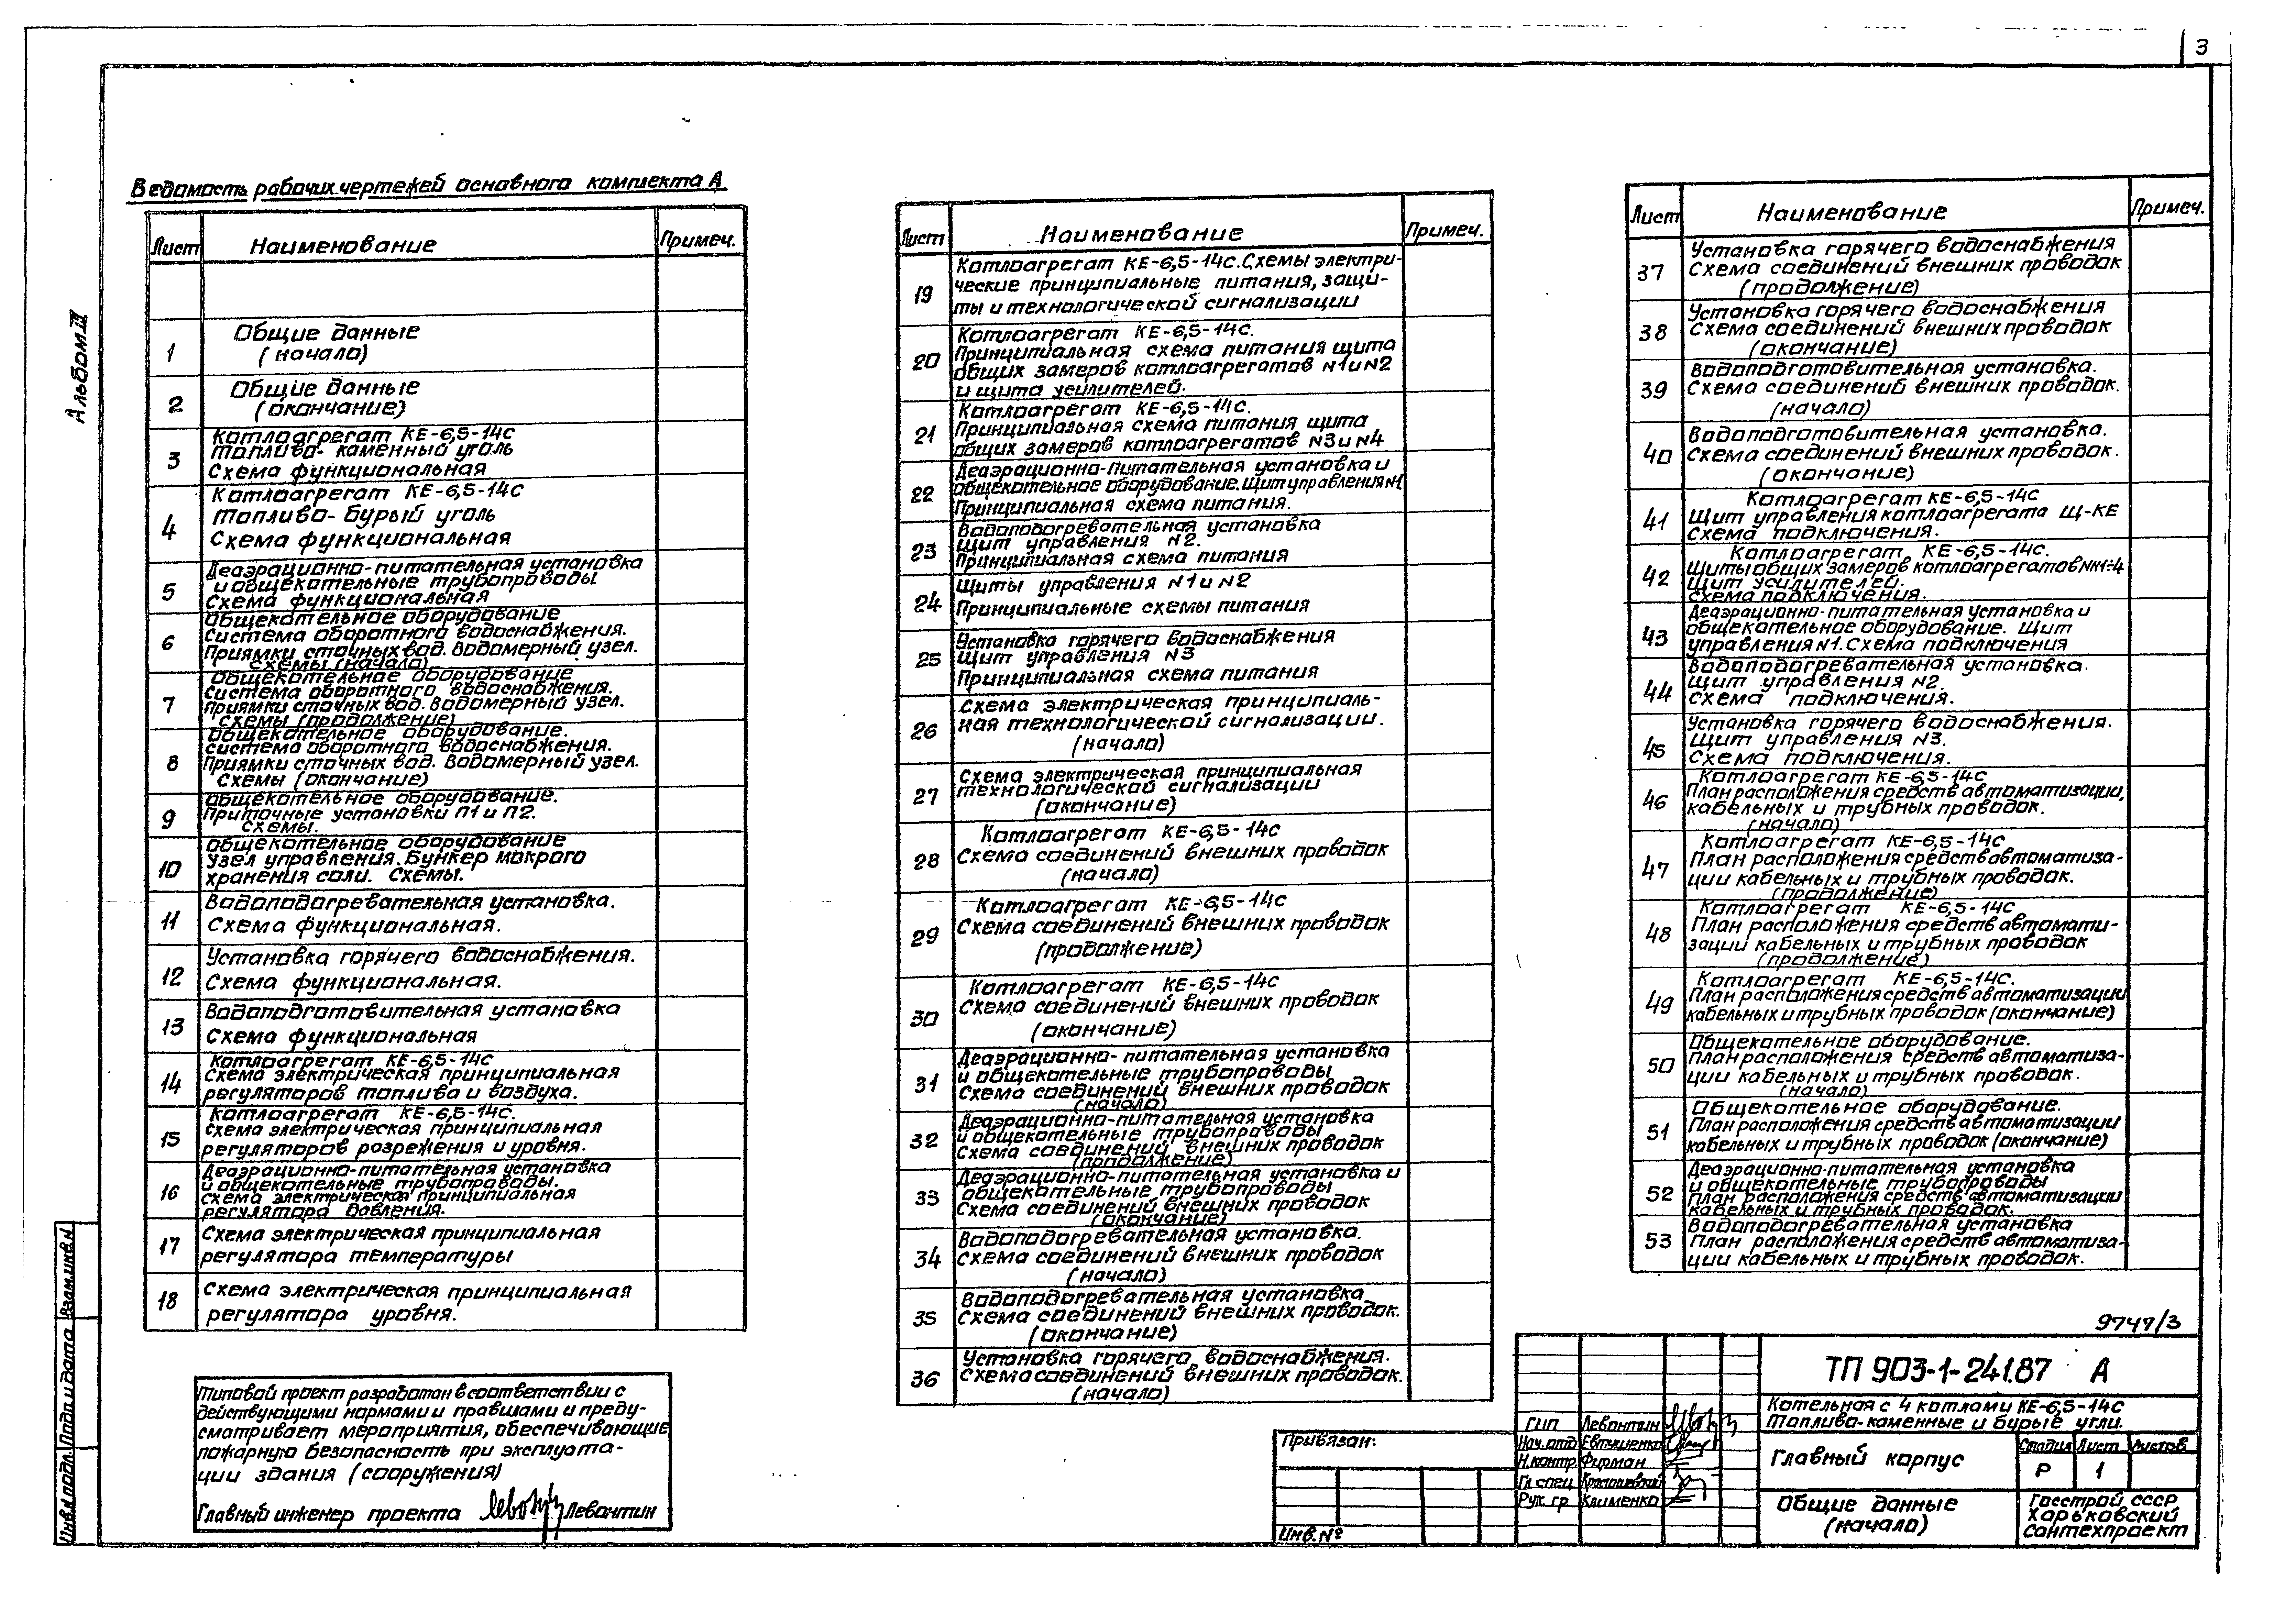 3
Альбом III
Ведомость рабочих чертежей основного комплекта А
Лист Наименование Примеч.
1 Общие данные
(начало)
2 Общие данные
(окончание)
3 Котлоагрегат КЕ-6,5-14С
Топливо- каменный уголь
Схема функциональная
4 Котлоагрегат КЕ-6,5-14С
Топливо- бурый уголь
Схема функциональная
5 Деаэрационно-питательная установка
и общекотельные трубопроводы
Схема функциональная
6 Общекотельное оборудование
Система оборотного водоснабжения.
Приямки сточных вод. Водомерный узел.
Схемы (начало)
7 Общекотельное оборудование
Система оборотного водоснабжения.
Приямки сточных вод. Водомерный узел.
Схемы (продолжение)
8 Общекотельное оборудование.
Система оборотного водоснабжения.
Приямки сточных вод. Водомерный узел.
Схемы (окончание)
9 Общекотельное оборудование.
Приточные установки П1 и П2.
Схемы.
10 Общекотельное оборудование
Узел управления. Бункер мокрого
хранения соли. Схемы.
11 Водоподогревательная установка.
Схема функциональная.
12 Установка горячего водоснабжения.
Схема функциональная.
13 Водоподготовительная установка
Схема функциональная
14 Котлоагрегат КЕ-6,5-14С
Схема электрическая принципиальная
регуляторов топлива и воздуха.
15 Котлоагрегат КЕ-6,5-14С.
Схема электрическая принципиальная
регуляторов розрежения и уровня.
16 Деаэрационно-питательная установка
и общекотельные трубопроводы.
Схема электрическая принципиальная
регулятора давления.
17 Схема электрическая принципиальная
регулятора температуры
18 Схема электрическая принципиальная
регулятора уровня.
Лист Наименование Примеч.
19 Котлоагрегат КЕ-6,5-14С. Схемы электри-
ческие принципиальные питания, защи-
ты и технологической сигнализации
20 Котлоагрегат КЕ-6,5-14С.
Принципиальная схема питания щита
общих замеров котлоагрегатов N1 и N2
и щита усилителей.
21 Котлоагрегат КЕ-6,5-14С.
Принципиальная схема питания щита
общих замеров котлоагрегатов N3 и N4
22 Деаэрационно-питательная установка и
общекотельное оборудование. Щит управления N1
Принципиальная схема питания.
23 Водоподогревательная установка
Щит управления N2.
Принципиальная схема питания
24 Щиты управления N1 и N2
Принципиальные схемы питания
25 Установка горячего водоснабжения
Щит управления N3
Принципиальная схема питания
26 Схема электрическая принципиаль-
ная технологической сигнализации.
(начало)
27 Схема электрическая принципиальная
технологической сигнализации
(окончание)
28 Котлоагрегат КЕ-6,5-14С
Схема соединений внешних проводок
(начало)
29 Котлоагрегат КЕ-6,5-14С
Схема соединений внешних проводок
(продолжение)
30 Котлоагрегат КЕ-6,5-14С
Схема соединений внешних проводок
(окончание)
31 Деаэрационно- питательная установка
и общекотельные трубопроводы
Схема соединений внешних проводок
(начало)
32 Деаэрационно-питательная установка
и общекотельные трубопроводы
Схема соединений внешних проводок
(продолжение)
33 Деаэрационно-питательная установка и
общекотельные трубопроводы
Схема соединений внешних проводок
(окончание)
34 Водоподогревательная установка.
Схема соединений внешних проводок
(начало)
35 Водоподогревательная установка
Схема соединений внешних проводок.
(окончание)
36 Установка горячего водоснабжения.
Схема соединений внешних проводок.
(начало)
Лист Наименование Примеч.
37 Установка горячего водоснабжения
Схема соединений внешних проводок
(продолжение)
38 Установка горячего водоснабжения
Схема соединений внешних проводок
(окончание)
39 Водоподготовительная установка.
Схема соединений внешних проводок.
(начало)
40 Водоподготовительная установка.
Схема соединений внешних проводок.
(окончание)
41 Котлоагрегат КЕ-6,5-14С
Щит управления котлоагрегата Щ-КЕ
Схема подключения.
42 Котлоагрегат КЕ-6,5-14С.
Щиты общих замеров котлоагрегатов NN1÷4
Щит усилителей.
Схема подключения.
43 Деаэрационно-питательная установка и
общекотельное оборудование. Щит
управления N1. Схема подключения
44 Водоподогревательная установка.
Щит управления N2.
Схема подключения.
45 Установка горячего водоснабжения.
Щит управления N3.
Схема подключения.
46 Котлоагрегат КЕ-6,5-14С
План расположения средств автоматизации,
кабельных и трубных проводок.
(начало)
47 Котлоагрегат КЕ-6,5-14С
План расположения средств автоматиза-
ции кабельных и трубных проводок.
(продолжение)
48 Котлоагрегат КЕ-6,5-14С
План расположения средств автомати-
зации кабельных и трубных проводок
(продолжение)
49 Котлоагрегат КЕ-6,5-14С.
План расположения средств автоматизации
кабельных и трубных проводок (окончание)
50 Общекотельное оборудование.
План расположения средств автоматиза-
ции кабельных и трубных проводок.
(начало)
51 Общекотельное оборудование.
План расположения средств автоматизации
кабельных и трубных проводок (окончание)
52 Деаэрационно-питательная установка
и общекотельные трубопроводы
План расположения средств автоматизации
кабельных и трубных проводок.
53 Водоподогревательная установка
План расположения средств автоматиза-
ции кабельных и трубных проводок.
Типовой проект разработан в соответствии с
действующими нормами и правилами и преду-
сматривает мероприятия, обеспечивающие
пожарную безопасность при эксплуата-
ции здания (сооружения)
Главный инженер проекта Левантин
Инв.N подл. Подп. и дата Взам.инв.N
9747/3
Привязан:
Инв. №
ГИП Левантин
Нач. отд Евтушенко
Н.контр. Фирман
Гл. спец
Рук. гр. Клименко
ТП 903-1-241.87 А
Котельная с 4 котлами КЕ-6,5-14С
Топливо-каменные и бурые угли.
Главный корпус
Стадия Лист Листов
Р 1
Общие данные
(начало)
Госстрой СССР
Харьковский
Сантехпроект